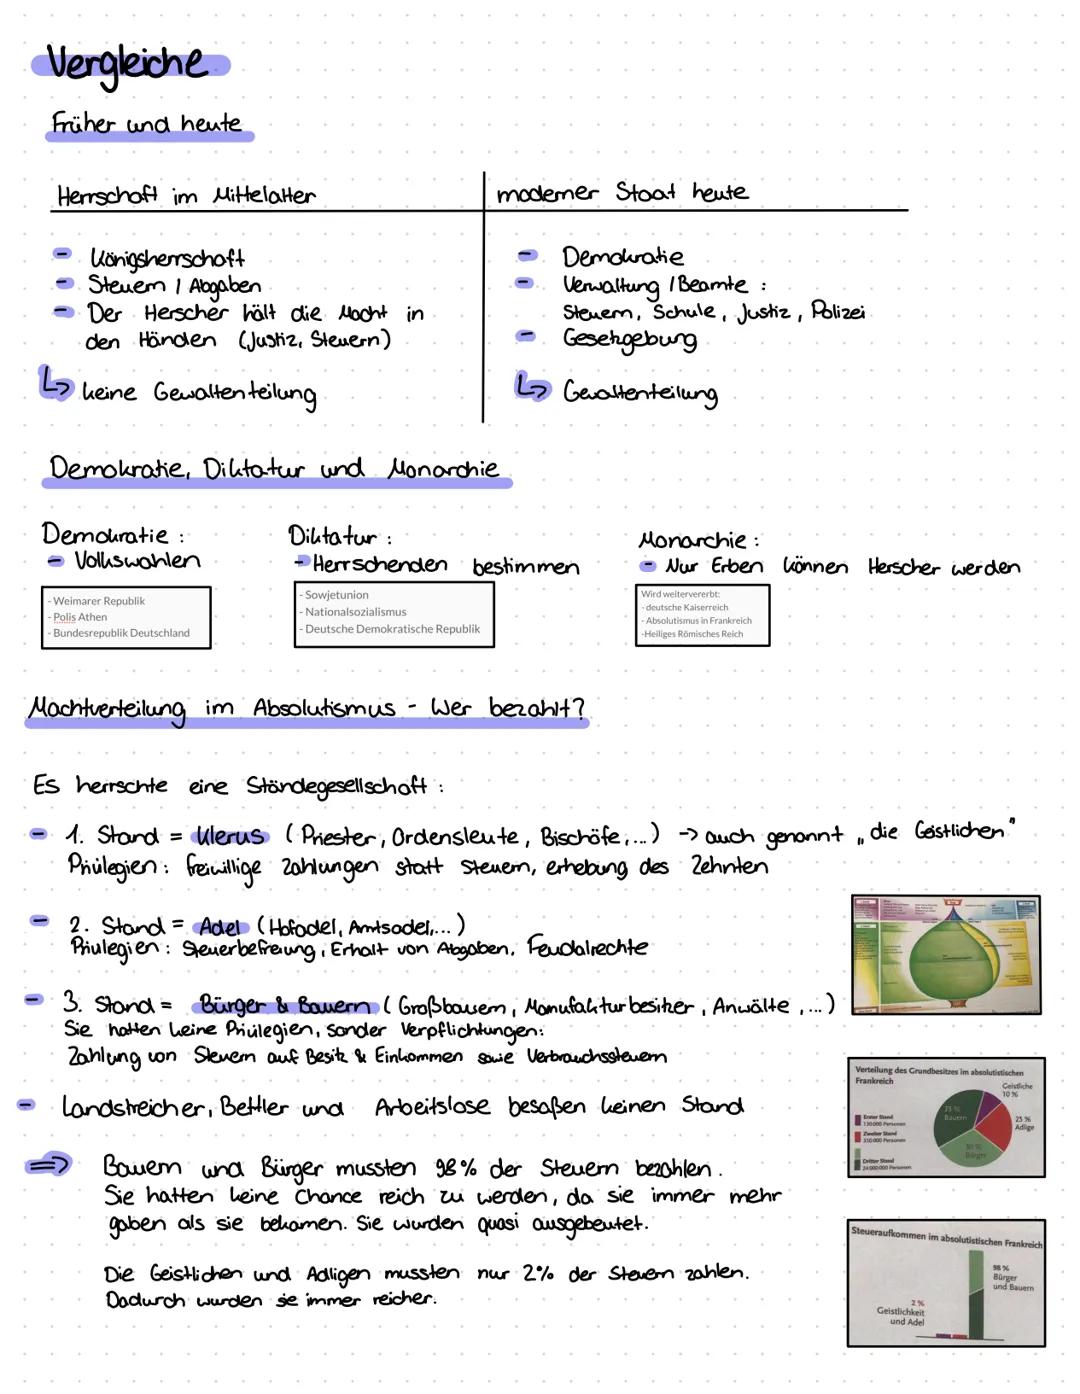 Vergleiche
Früher und heute
Herrschaft im Mittelalter
moderner Staat heute
- Königsherrschaft
- Steuern / Abgaben
- Der Herscher hält die Macht in
den Händen (Justiz, Steuern)
↳ keine Gewaltenteilung
- Demokratie
- Verwaltung / Beamte :
Steuern, Schule, Justiz, Polizei
- Gesetzgebung
↳ Gewaltenteilung
Demokratie, Diktatur und Monarchie
Demokratie :
- Volkswahlen
- Weimarer Republik
- Polis Athen
- Bundesrepublik Deutschland
Diktatur :
- Herrschenden bestimmen
- Sowjetunion
- Nationalsozialismus
- Deutsche Demokratische Republik
Monarchie :
- Nur Erben können Herscher werden
Wird weitervererbt:
- deutsche Kaiserreich
- Absolutismus in Frankreich
-Heiliges Römisches Reich
Machtverteilung im Absolutismus - Wer bezahlt?
Es herrschte eine Ständegesellschaft :
- 1. Stand = Klerus (Priester, Ordensleute, Bischöfe,...) → auch genannt „die Geistlichen"
Privilegien : freiwillige Zahlungen statt Steuern, erhebung des Zehnten
- 2. Stand = Adel (Hofadel, Amtsadel,...)
Privilegien : Steuerbefreiung, Erhalt von Abgaben, Feudalrechte
- 3. Stand = Bürger & Bauern (Großbauern, Manufakturbesitzer, Anwälte,...)
Sie hatten keine Privilegien, sonder Verpflichtungen:
Zahlung von Steuern auf Besitz & Einkommen sowie Verbrauchssteuern
- Landstreicher, Bettler und Arbeitslose besaßen keinen Stand
⇒ Bauern und Bürger mussten 98% der Steuern bezahlen.
Sie hatten keine Chance reich zu werden, da sie immer mehr
gaben als sie bekamen. Sie wurden quasi ausgebeutet.
Die Geistlichen und Adligen mussten nur 2% der Steuern zahlen.
Dadurch wurden sie immer reicher.
Verteilung des Grundbesitzes im absolutistischen
Frankreich
Geistliche
10 %
25 %
Adlige
35 %
Bauern
30 %
Bürger
Erster Stand
130 000 Personen
Zweiter Stand
350 000 Personen
Dritter Stand
24 000 000 Personen
Steueraufkommen im absolutistischen Frankreich
98 %
Bürger
und Bauern
2 %
Geistlichkeit
und Adel